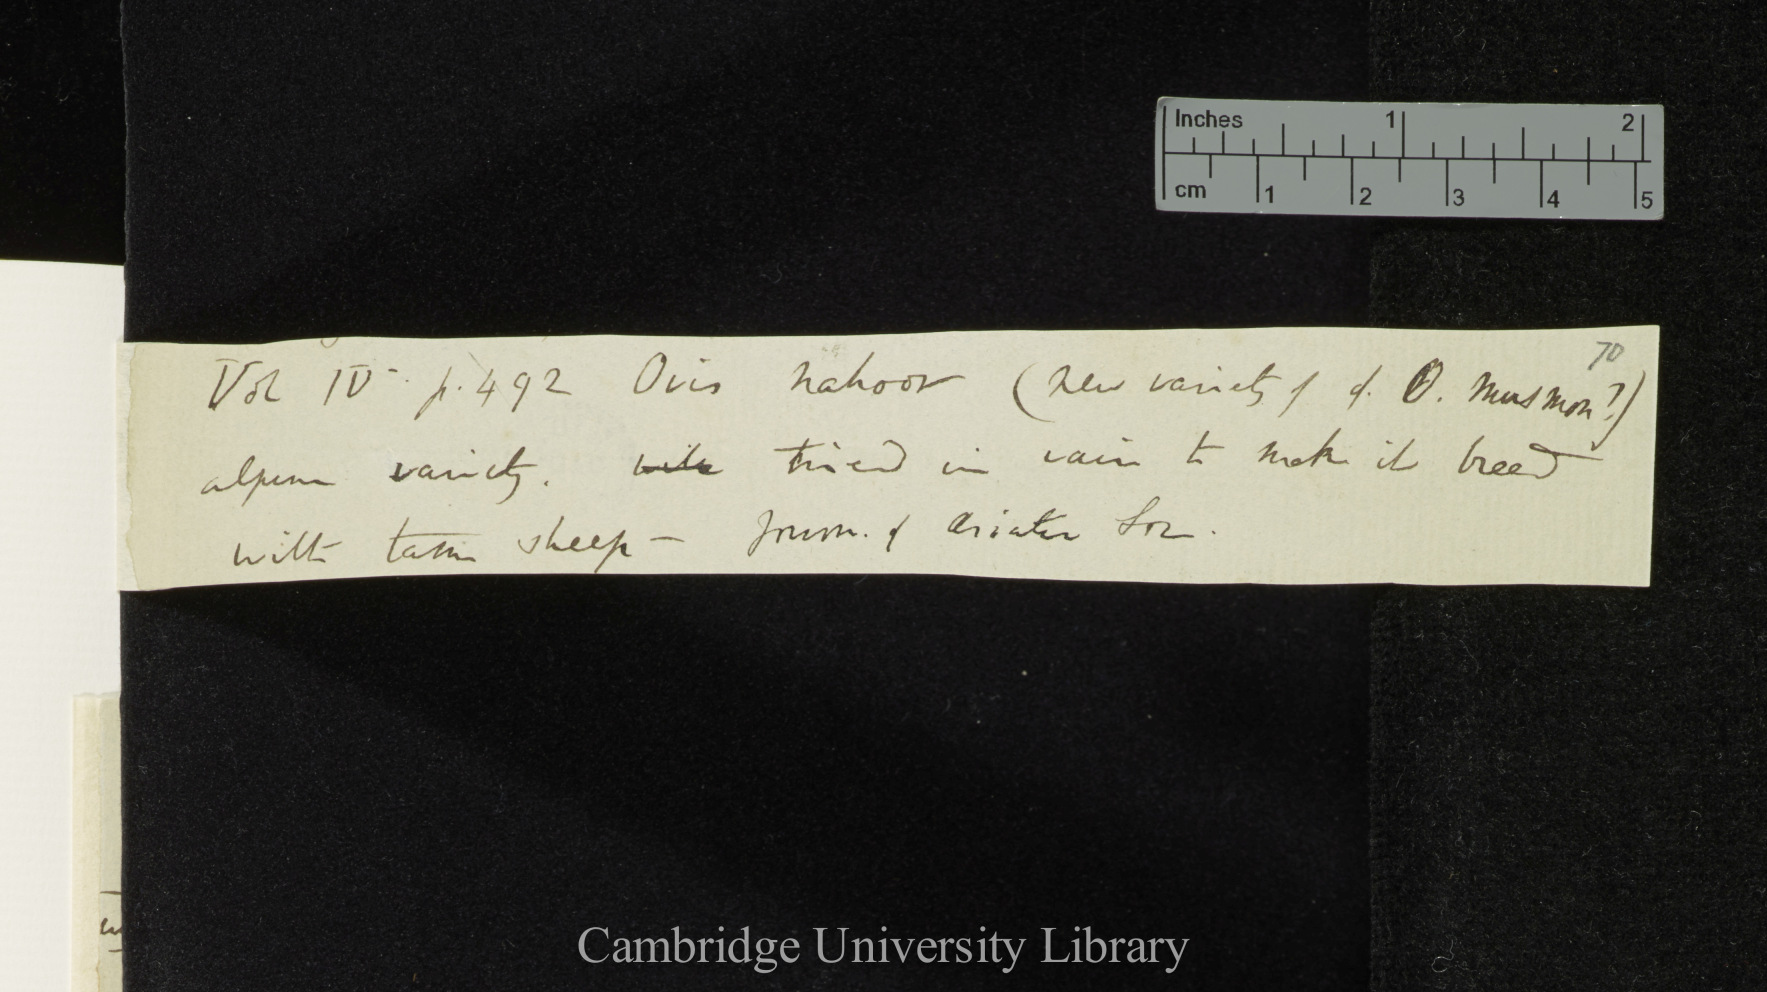 Inches 1 2
cm 1 2 3 4 5
70
Vol IV. p. 492 Ovis nahoor (new variety of O. Musmon?)
alpine variety. tried in vain to make it breed
with tame sheep — Journ. of Asiatic Soc.
Cambridge University Library